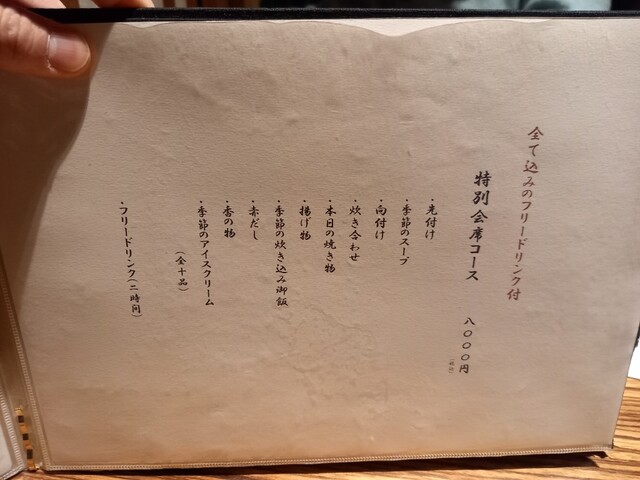 全て込みのフリードリンク付
特別会席コース 八〇〇〇円
・先付け
・季節のスープ
・向付け
・炊き合わせ
・本日の焼き物
・揚げ物
・季節の炊き込み御飯
・赤だし
・香の物
・季節のアイスクリーム
(全十品)
・フリードリンク(二時間)